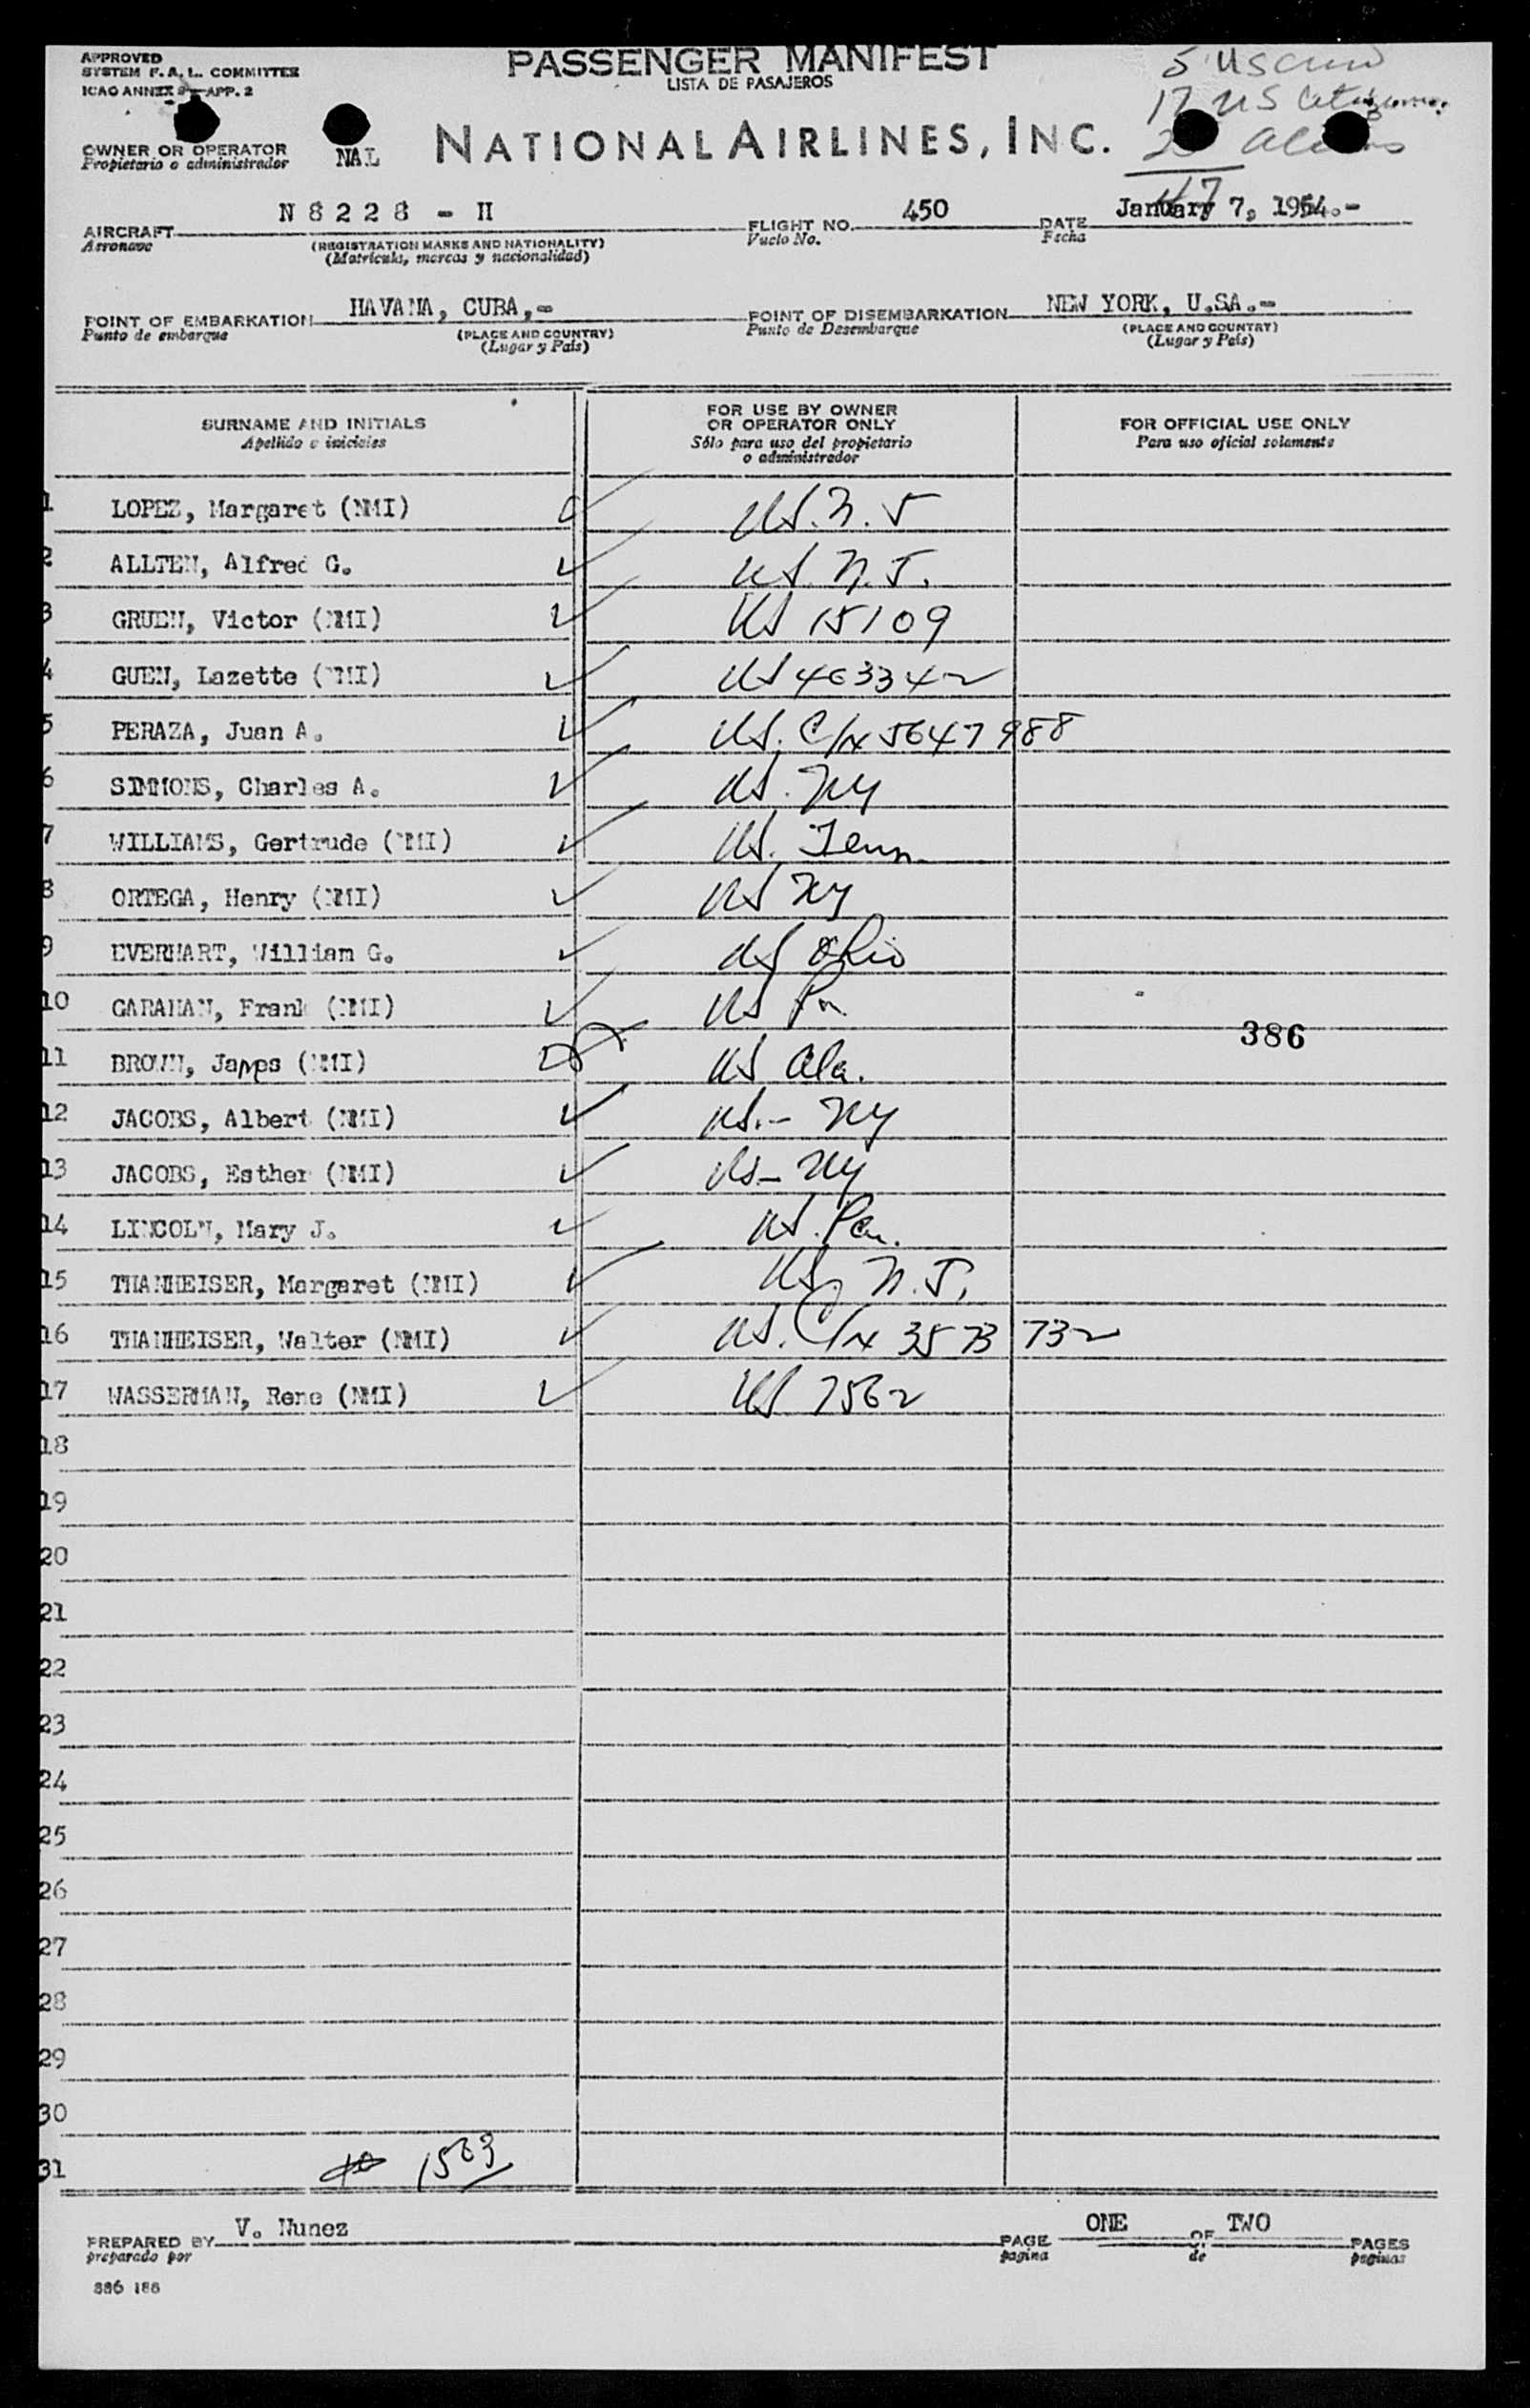 APPROVED
SYSTEM F. A. L. COMMITTEE
ICAO ANNEX 9 APP. 2
PASSENGER MANIFEST
LISTA DE PASAJEROS
5 US crew
17 US Citizens
25 Aliens
47
OWNER OR OPERATOR NAL
Propietario o administrador
NATIONAL AIRLINES, INC.
AIRCRAFT N 8 2 2 8 - H FLIGHT NO. 450 DATE January 7, 1954.-
Aeronave (REGISTRATION MARKS AND NATIONALITY) Vuelo No. Fecha
(Matrícula, marcas y nacionalidad)
POINT OF EMBARKATION HAVANA, CUBA,- POINT OF DISEMBARKATION NEW YORK, U.SA.-
Punto de embarque (PLACE AND COUNTRY) Punto de Desembarque (PLACE AND COUNTRY)
(Lugar y País) (Lugar y País)
SURNAME AND INITIALS FOR USE BY OWNER OR OPERATOR ONLY FOR OFFICIAL USE ONLY
Apellido e iniciales Sólo para uso del propietario o administrador Para uso oficial solamente
1 LOPEZ, Margaret (NMI) US. N. J
2 ALLTEN, Alfred G. US. N. J.
3 GRUEN, Victor (NMI) US 15109
4 GUEN, Lazette (NMI) US 463342
5 PERAZA, Juan A. US. C/N 5647988
6 SIMMONS, Charles A. US. NY
7 WILLIAMS, Gertrude (NMI) US. Tenn
8 ORTEGA, Henry (NMI) US NY
9 EVERHART, William G. US Ohio
10 GARAHAN, Frank (NMI) US Pa
386
11 BROWN, James (NMI) US Ala.
12 JACOBS, Albert (NMI) US.- NY
13 JACOBS, Esther (NMI) US- NY
14 LINCOLN, Mary J. US. Pa.
15 THANHEISER, Margaret (NMI) US, N.J.
16 THANHEISER, Walter (NMI) US. C/N 3573732
17 WASSERMAN, Rene (NMI) US 7562
18
19
20
21
22
23
24
25
26
27
28
29
30
31 1503
PREPARED BY V. Nunez PAGE ONE OF TWO PAGES
preparado por pagina de paginas
886 186